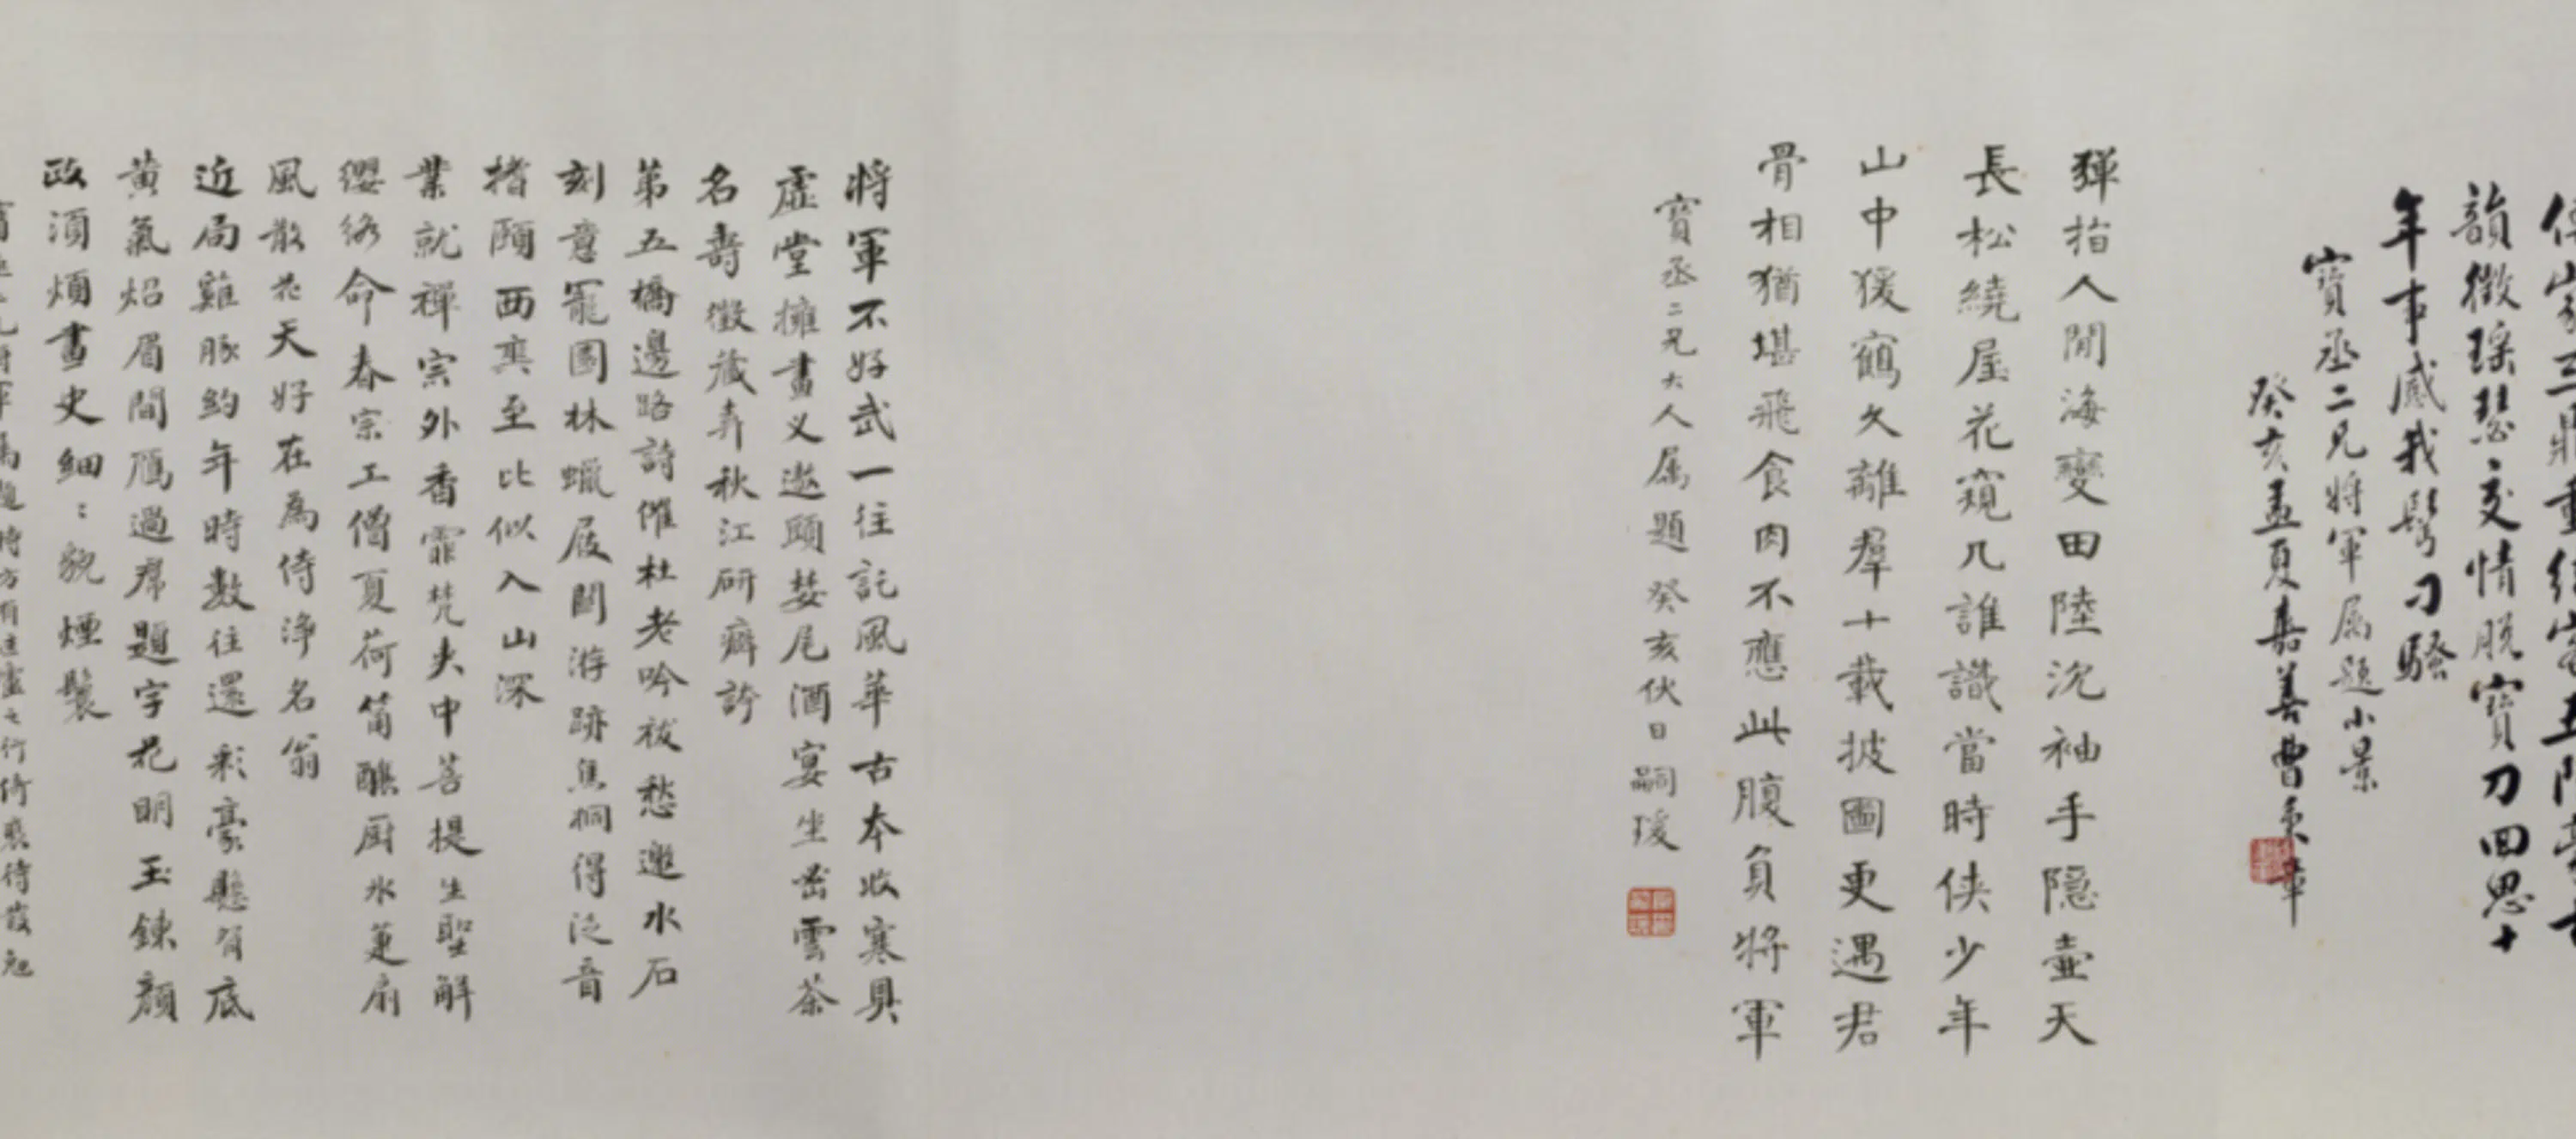 韻徵瑤瑟交情脫寶刀回思十
年事感我鬢刁騷
寶丞二兄將軍屬題小景
癸亥孟夏嘉善曹秉章
彈指人間海變田陸沈袖手隱壺天
長松繞屋花窺几誰識當時俠少年
山中猨鶴久離羣十載披圖更遇君
骨相猶堪飛食肉不應此腹負將軍
寶丞二兄大人属題 癸亥伏日嗣瑗
將軍不好武一往託風華古本收寒具
虛堂擁畫叉邀頭婪尾酒宴坐岊雲茶
名壽徵藏弆秋江研癖誇
第五橋邊路詩催杜老吟祓愁邀水石
刻意寵園林蠟屐閒游跡焦桐得泛音
揩頤西爽至比似入山深
業就禪宗外香霏梵夾中菩提生聖解
纓絡命春宗工僧夏荷筩醮厨氷蓮扇
風散花天好在為侍淨名翁
近局雞豚約年時數往還彩豪懸肯底
黃氣炤眉間鴈過席題字花明玉鍊顏
政須煩畫史細：貌煙鬟